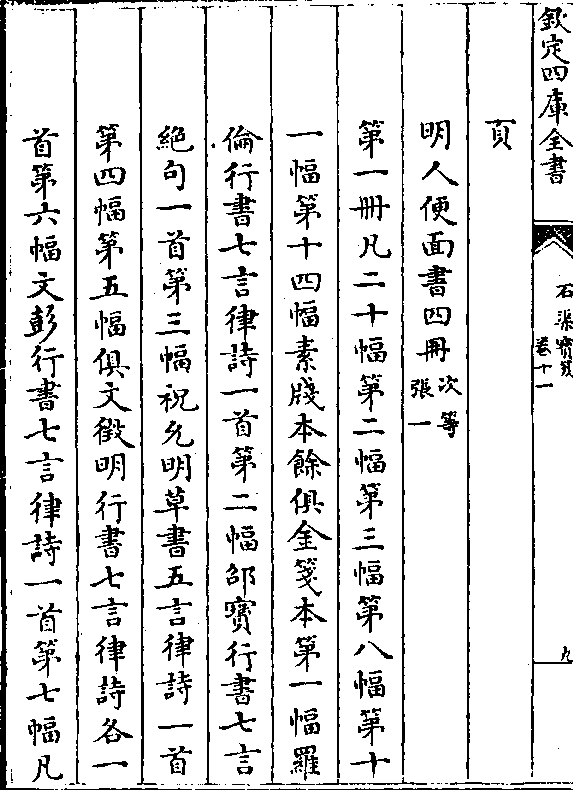 欽定四庫全書
石渠寶笈
卷十一
九
頁
明人便面書四冊次等
張一
第一冊凡二十幅第二幅第三幅第八幅第十
一幅第十四幅素牋本餘俱金箋本第一幅羅
倫行書七言律詩一首第二幅邵寳行書七言
絶句一首第三幅祝允明草書五言律詩一首
第四幅第五幅俱文徵明行書七言律詩各一
首第六幅文彭行書七言律詩一首第七幅凡